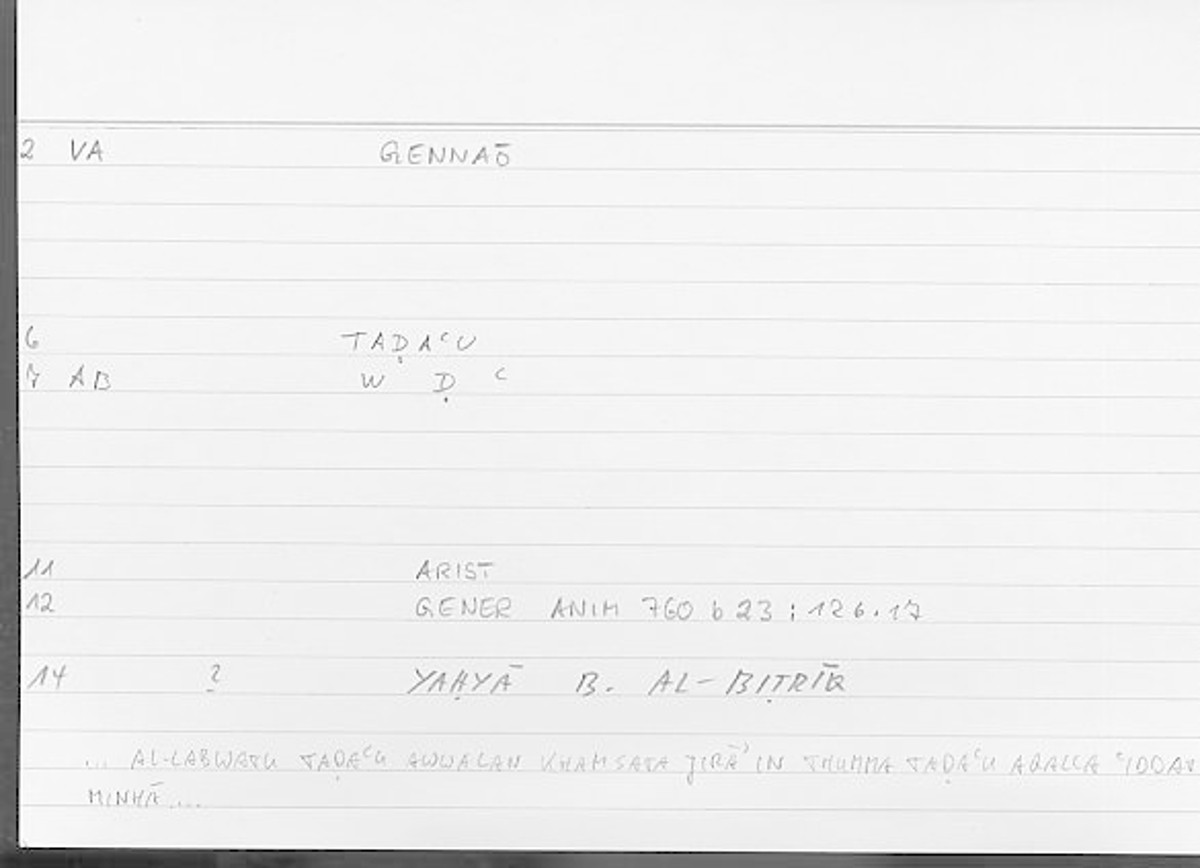 2 VA GENNAŌ
6 TAḌAʿU
7 AB W Ḍ ʿ
11 ARIST
12 GENER ANIM 760 b 23 ; 126.17
14 ? YAḤYĀ B. AL-BIṬRĪQ
... AL-LABWATU TAḌAʿU AWWALAN KHAMSATA JIRĀʾIN THUMMA TAḌAʿU AQALLA
MINHĀ ...